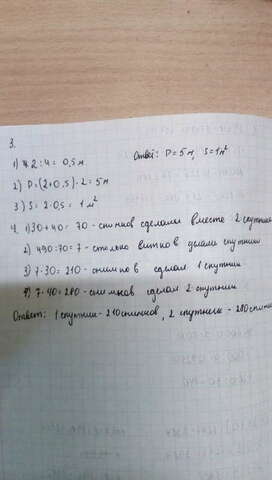 3.
1) 2 : 4 = 0,5 м
Ответ: P = 5 м, S = 1 м²
2) P = (2+0,5)·2 = 5 м
3) S = 2·0,5 = 1 м²
4. 1) 30 + 40 = 70 - снимков сделали вместе 2 спутника
2) 490:70 = 7 - столько витков сделали спутники
3) 7·30 = 210 - снимков сделал 1 спутник
4) 7·40 = 280 - снимков сделал 2 спутник
Ответ: 1 спутник - 210 снимков, 2 спутник - 280 снимков